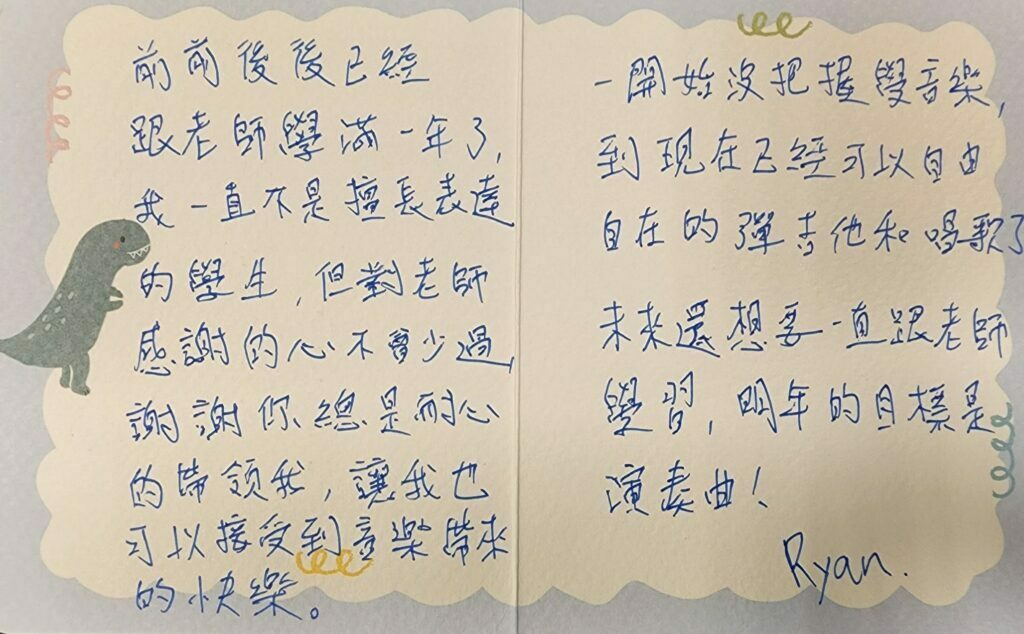 前前後後已經
跟老師學滿一年了,
我一直不是擅長表達
的學生,但對老師
感謝的心不曾少過,
謝謝你總是耐心
的帶領我,讓我也
可以接受到音樂帶來
的快樂。
一開始沒把握學音樂,
到現在已經可以自由
自在的彈吉他和唱歌了
未來還想要一直跟老師
學習,明年的目標是
演奏曲!
Ryan.